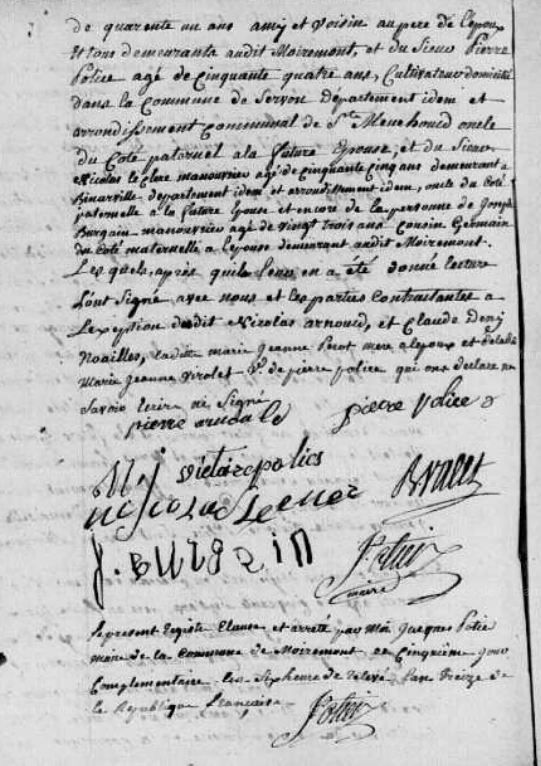 de quarente un ans amy et voisin au pere de lepoux
et tous demeurants audit Moiremont, et du Sieur Pierre
Police agé de Cinquante quatre ans, Cultivateur domicilié
dans la Commune de Servon département idem et
arrondissement Communal de Ste Menehould oncle
du Coté paternel a la future Epouse, et du Sieur
Nicolas le Clere manouvrier agé de Cinquante Cinq ans demeurant a
Binarville, departement idem et arrondissement idem, oncle du Coté
paternelle a la future Epouse et encore de la personne de Joseph
Burgain manouvrier agé de vingt trois ans Cousin Germain
du Coté maternelle a lepouse demeurant audit Moiremont.
Les quels, après quil leurs en a été donné lecture
L'ont Signé avec nous et les parties Contractantes a
Lexeption dudit Nicolas arnoud, et Claude Deny
Noailles, laditte marie Jeanne Perot mere a lepoux et de ladit
Marie Jeanne Virolet Ve de pierre police qui ont declaré ne
Savoir Ecrire ni Signé
pierre
pierre Police
victoire polies
nicolas Leclere
J. BURgain
Potier
maire
Le present registre Clause et arreté par Moi Jacques Potier
maire de la Commune de Moiremont ce Cinquième jour
Complementaire les Six heure de relevé Lan treize de
la République française
Potier